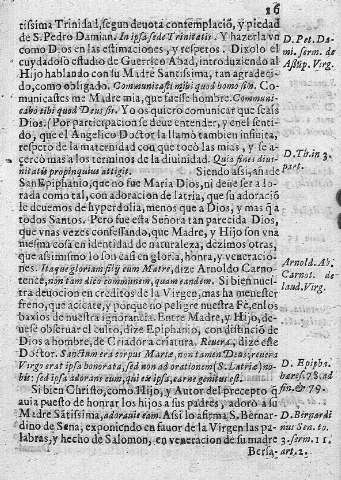 16
tissima Trinidad, segun deuota contemplació, y piedad
de S. Pedro Damian. In ipsa sede Trinitatis. Y hazerla vn
como Dios en las estimaciones, y respetos. Dixolo el
cuydadoso estudio de Guerrico Abad, introduciendo al
Hijo hablando con su Madre Santissima, tan agradeci-
do, como obligado. Communicasti mihi quod homo sum. Co-
municastes me Madre mia, que fuesse hombre. Communi-
cabo tibi quod Deus sum. Yo os quiero comunicar que seais
Dios. Por participacion se deue entender, y en el senti-
do, que el Angelico Doctor la llamò tambien infinita,
respeto de la maternidad con que tocò las mias, y se a-
cercò mas a los terminos de la diuinidad. Quia fines diui-
nitatis propinquius attigit. Siendo assi, añade
San Epiphanio, que no fue Maria Dios, ni deue ser ado-
rada como tal, con adoracion de latria, que su adoració
le deuemos de hyperdulia, menos que a Dios, y mas q̃ a
todos Santos. Pero fue esta Señora tan parecida Dios,
que vnas vezes confessando, que Madre, y Hijo son vna
mesma cosa en identidad de naturaleza, dezimos otras,
que assimismo lo son casi en gloria, honra, y veneracio-
nes. Itaque gloriam filij cum Matre, dize Arnoldo Carno-
tence, non tam dico communem, quam eandem. Si bien nues-
tra deuocion en creditos de la Virgen, mas ha menester
freno, que acicate, y porque no peligre nuestra Fè, en los
baxios de nuestra ignorancia. Entre Madre, y Hijo, de-
uese obseruar el culto, dize Epiphanio, con distinció de
Dios a hombre, de Criador a criatura. Reuera, dize este
Doctor. Sanctum erat corpus Mariæ, non tamen Deus; reuera
Virgo erat ipsa honorata, sed non ad orationem (S. Latriæ) no-
bis: sed ipsa adorans eum, qui ex ipsa, carne genitus est.
Si bien Christo, como Hijo, y Autor del precepto q̃
auia puesto de honrar los hijos a sus padres, adorò a su
Madre Sãtissima, adorauit eam. Assi lo afirma S. Bernar-
dino de Sena, exponiendo en fauor de la Virgen las pa-
labras, y hecho de Salomon, en veneracion de su madre
Bersa-
D. Pet. Da-
mi. serm. de
Assup. Virg.
D. Th. in 3.
part.
Arnold. Ab.
Carnot. de
laud. Virg.
D. Epiph.
hæres. 78. ad
fin. & 79.
D. Birnardi
nus Sen. to.
3. serm. 11.
art. 2.